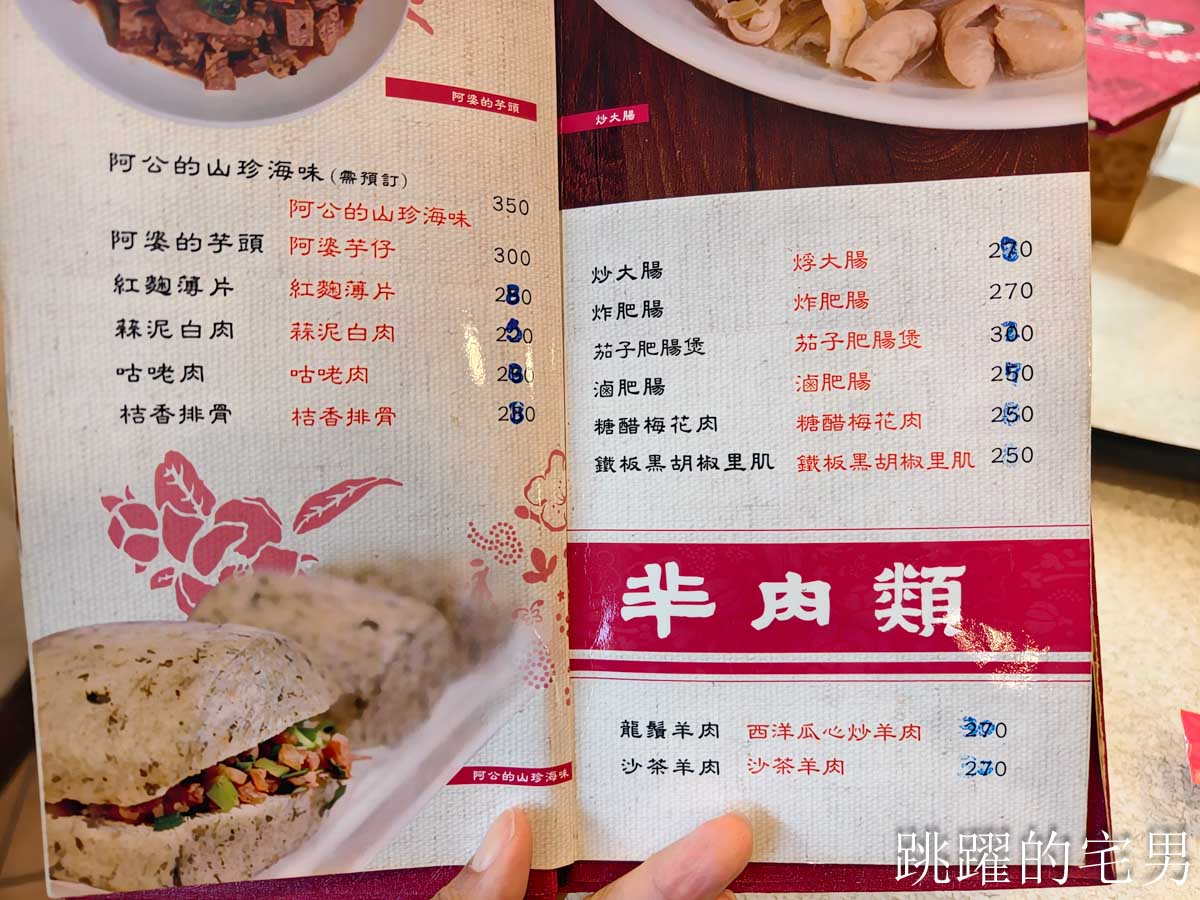 阿婆的芋頭
阿公的山珍海味(需預訂)
阿公的山珍海味 350
阿婆的芋頭 阿婆芋仔 300
紅麴薄片 紅麴薄片 280
蒜泥白肉 蒜泥白肉
咕咾肉 咕咾肉
桔香排骨 桔香排骨
阿公的山珍海味
炒大腸
炒大腸 烰大腸 270
炸肥腸 炸肥腸 270
茄子肥腸煲 茄子肥腸煲 300
滷肥腸 滷肥腸 250
糖醋梅花肉 糖醋梅花肉 250
鐵板黑胡椒里肌 鐵板黑胡椒里肌 250
羊肉類
龍鬚羊肉 西洋瓜心炒羊肉 270
沙茶羊肉 沙茶羊肉 270
跳躍的宅男